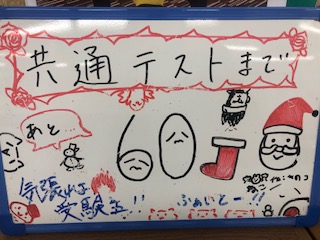 共通テストまで
あと...
60日
気張れよ
受験生!!
ふぁいとー!!